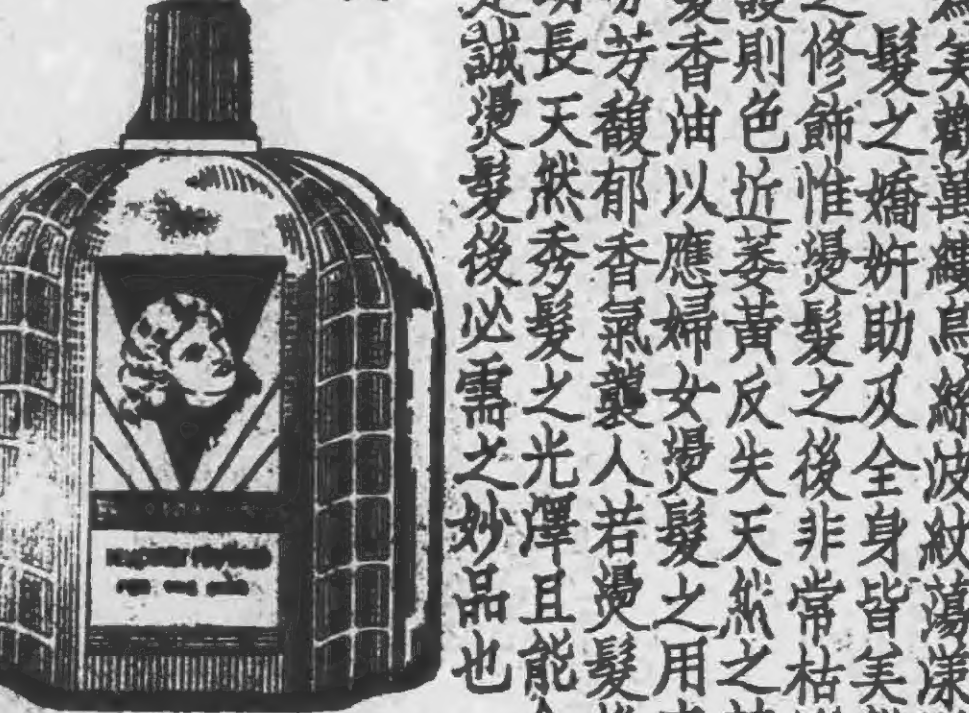 為美觀萬縷烏絲波紋蕩漾
髮之嬌妍助及全身皆美
之修飾惟燙髮之後非常枯
則色近萎黃反失天然之
髮香油以應婦女燙髮之用
芳馥郁香氣襲人若燙髮
長天然秀髮之光澤且能
是誠燙髮後必需之妙品也